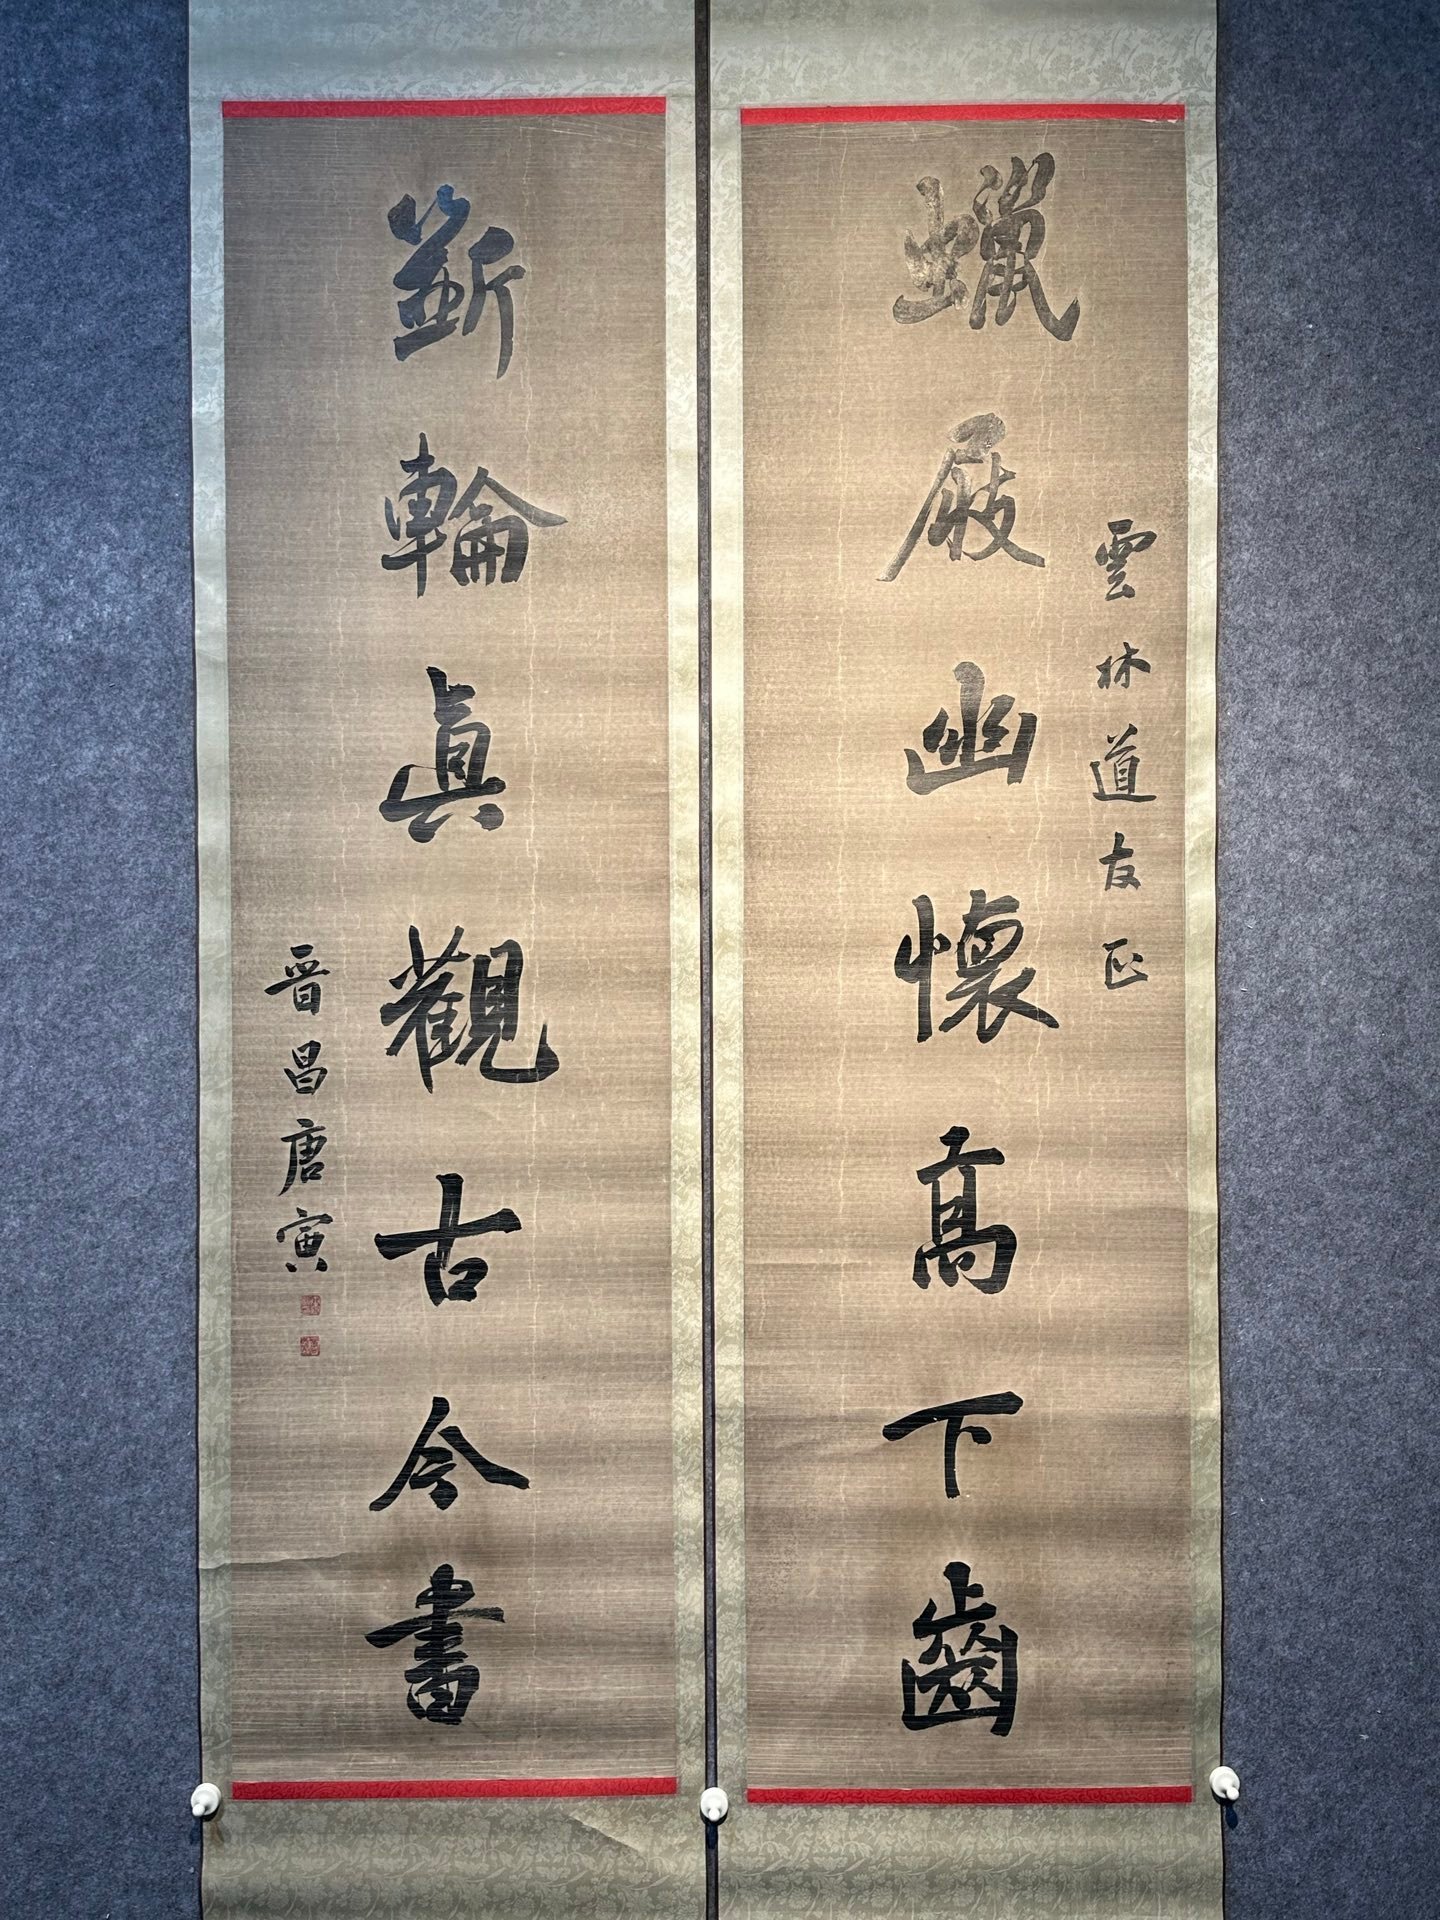 蠟屐幽懷高下齒
雲林道友正
斲輪真觀古今書
晉昌唐寅